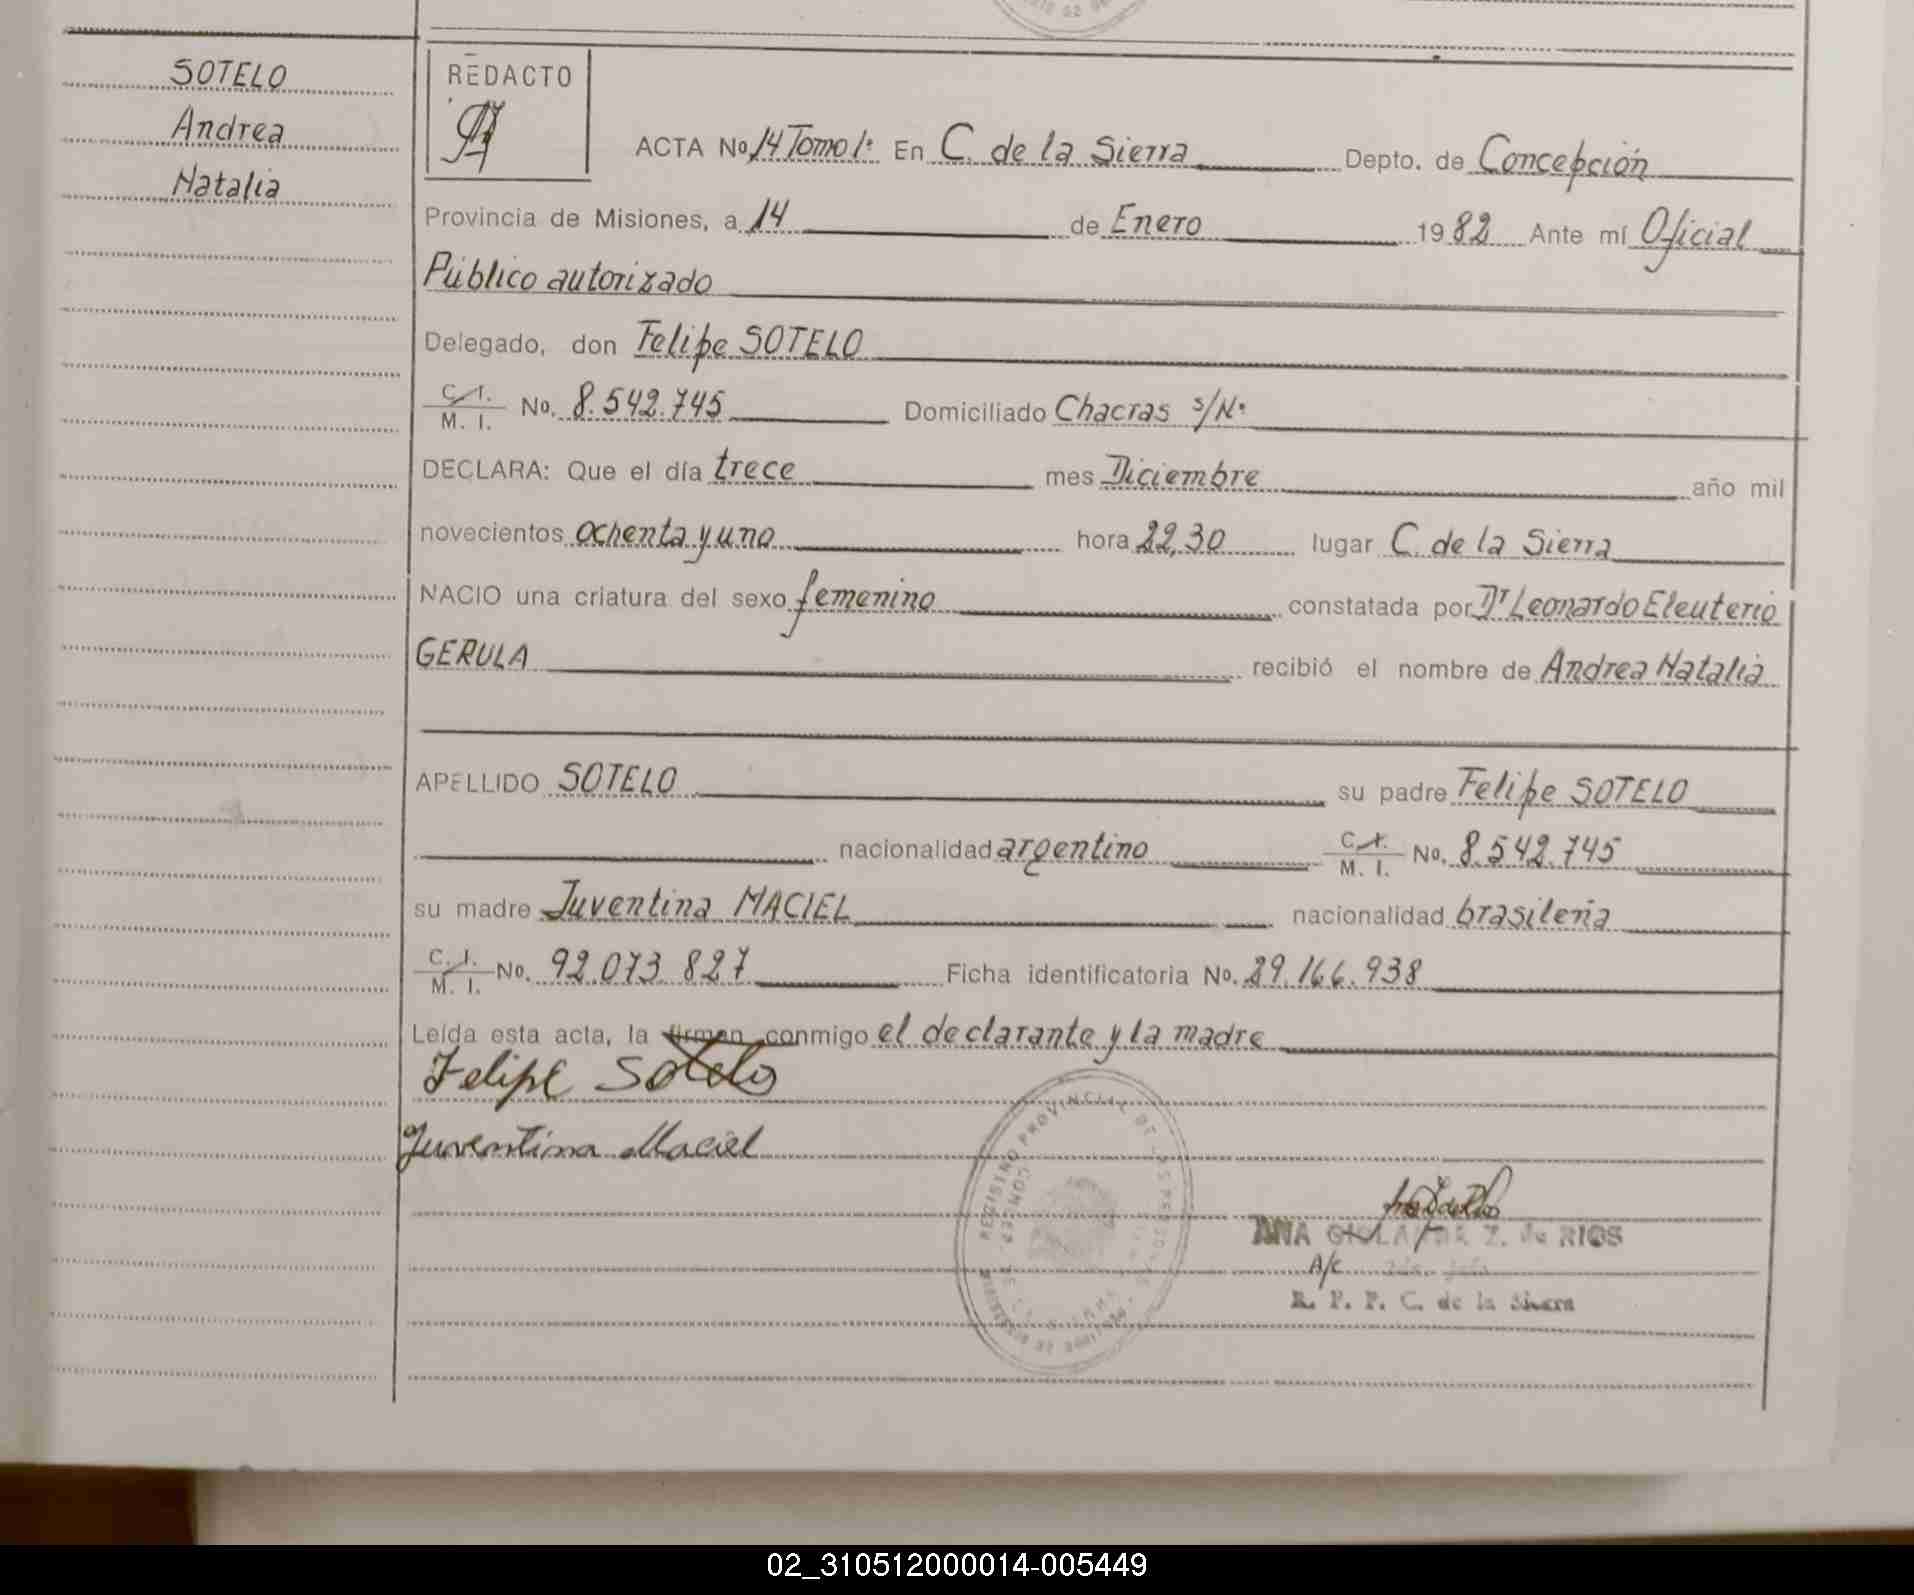 SOTELO
Andrea
Natalia
REDACTO
ACTA No 14 Tomo 1º En C. de la Sierra Depto. de Concepción
Provincia de Misiones, a 14 de Enero 1982 Ante mí Oficial
Público autorizado
Delegado, don Felipe SOTELO
C. I. / M. I. No. 8.542.745 Domiciliado Chacras s/Nº
DECLARA: Que el día trece mes Diciembre año mil
novecientos ochenta y uno hora 22,30 lugar C. de la Sierra
NACIO una criatura del sexo femenino constatada por Dr Leonardo Eleuterio
GERULA recibió el nombre de Andrea Natalia
APELLIDO SOTELO su padre Felipe SOTELO
nacionalidad argentino C. I. / M. I. No. 8.542.745
su madre Juventina MACIEL nacionalidad brasileña
C. I. / M. I. No. 92.073.827 Ficha identificatoria No. 29.166.938
Leída esta acta, la firman conmigo el declarante y la madre
Felipe Sotelo
Juventina Maciel
REGISTRO PROVINCIAL DE LAS PERSONAS
ANA Z. de RIOS
A/c
R. P. P. C. de la Sierra
02_310512000014-005449